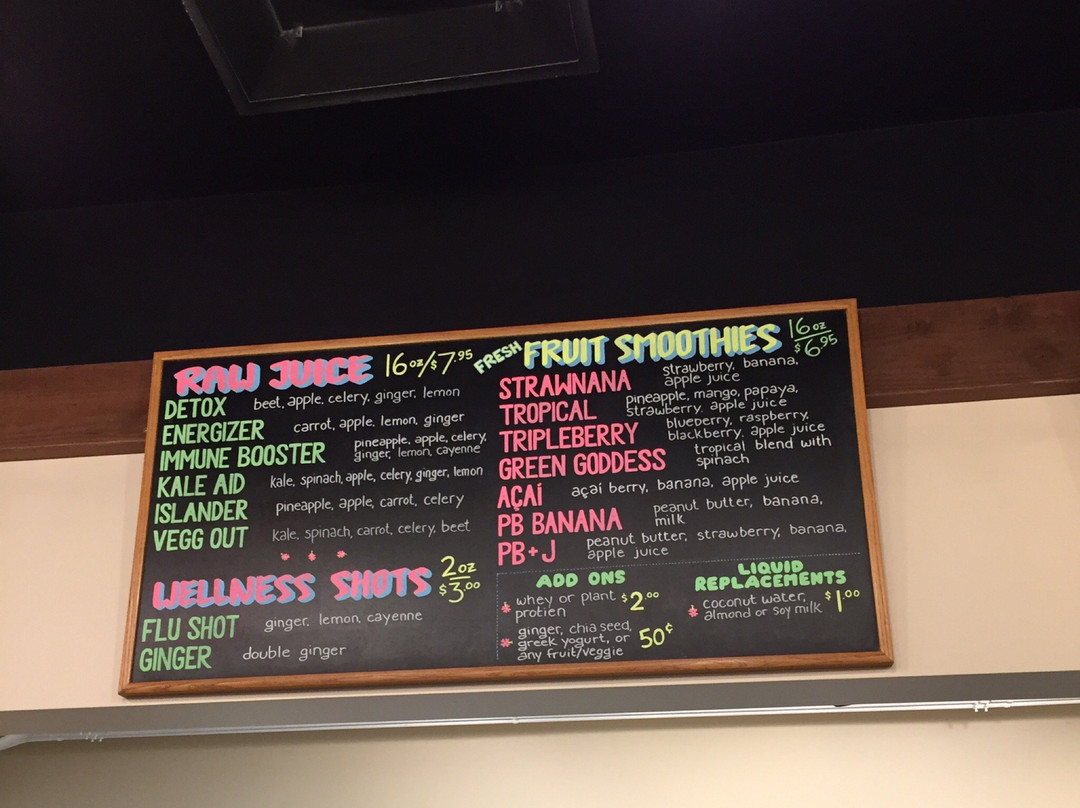 RAW JUICE 16oz/$7.95
DETOX beet, apple, celery, ginger, lemon
ENERGIZER carrot, apple, lemon, ginger
IMMUNE BOOSTER pineapple, apple, celery,
ginger, lemon, cayenne
KALE AID kale, spinach, apple, celery, ginger, lemon
ISLANDER pineapple, apple, carrot, celery
VEGG OUT kale, spinach, carrot, celery, beet
WELLNESS SHOTS 2oz
$3.00
FLU SHOT ginger, lemon, cayenne
GINGER double ginger
FRESH FRUIT SMOOTHIES 16oz
$6.95
STRAWNANA strawberry, banana,
apple juice
TROPICAL pineapple, mango, papaya,
strawberry, apple juice
TRIPLEBERRY blueberry, raspberry,
blackberry, apple juice
GREEN GODDESS tropical blend with
spinach
AÇAÍ açaí berry, banana, apple juice
PB BANANA peanut butter, banana,
milk
PB+J peanut butter, strawberry, banana,
apple juice
ADD ONS
whey or plant $2.00
protien
ginger, chia seed,
greek yogurt, or 50¢
any fruit/veggie
LIQUID
REPLACEMENTS
coconut water, $1.00
almond or soy milk